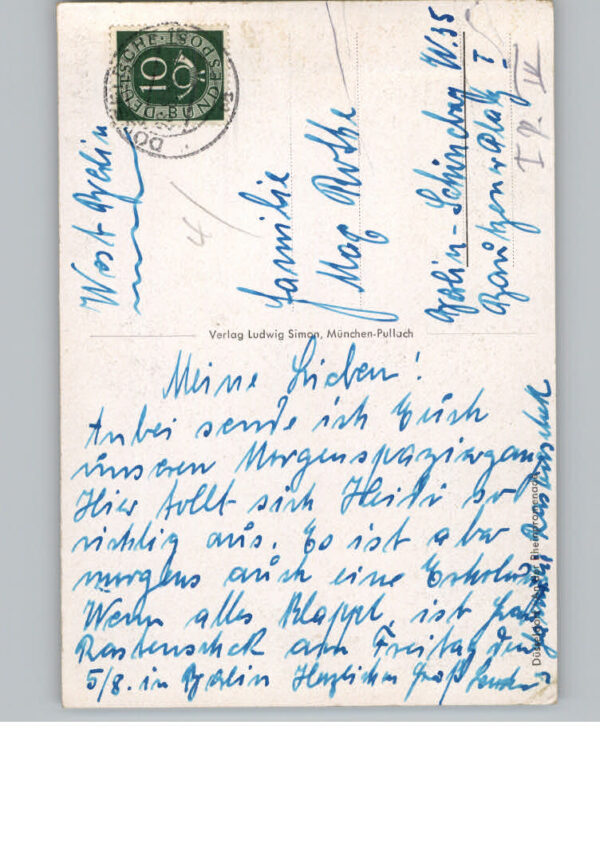 DEUTSCHE BUNDESPOST
10
West Berlin
Familie
Max Rothe
Berlin-Schöneberg W. 35
Bautzenerplatz
Verlag Ludwig Simon, München-Pullach
Meine Lieben!
Anbei sende ich Euch
unseren Morgenspaziergang
Hier tollt sich Heidi so
richtig aus. Es ist aber
morgens auch eine Erholung
Wenn alles klappt, ist Frau
Rastenschek am Freitag den
5/8. in Berlin Herzlichen Gruß senden
Rastenschek
Düsseldorf an der Rheinpromenade